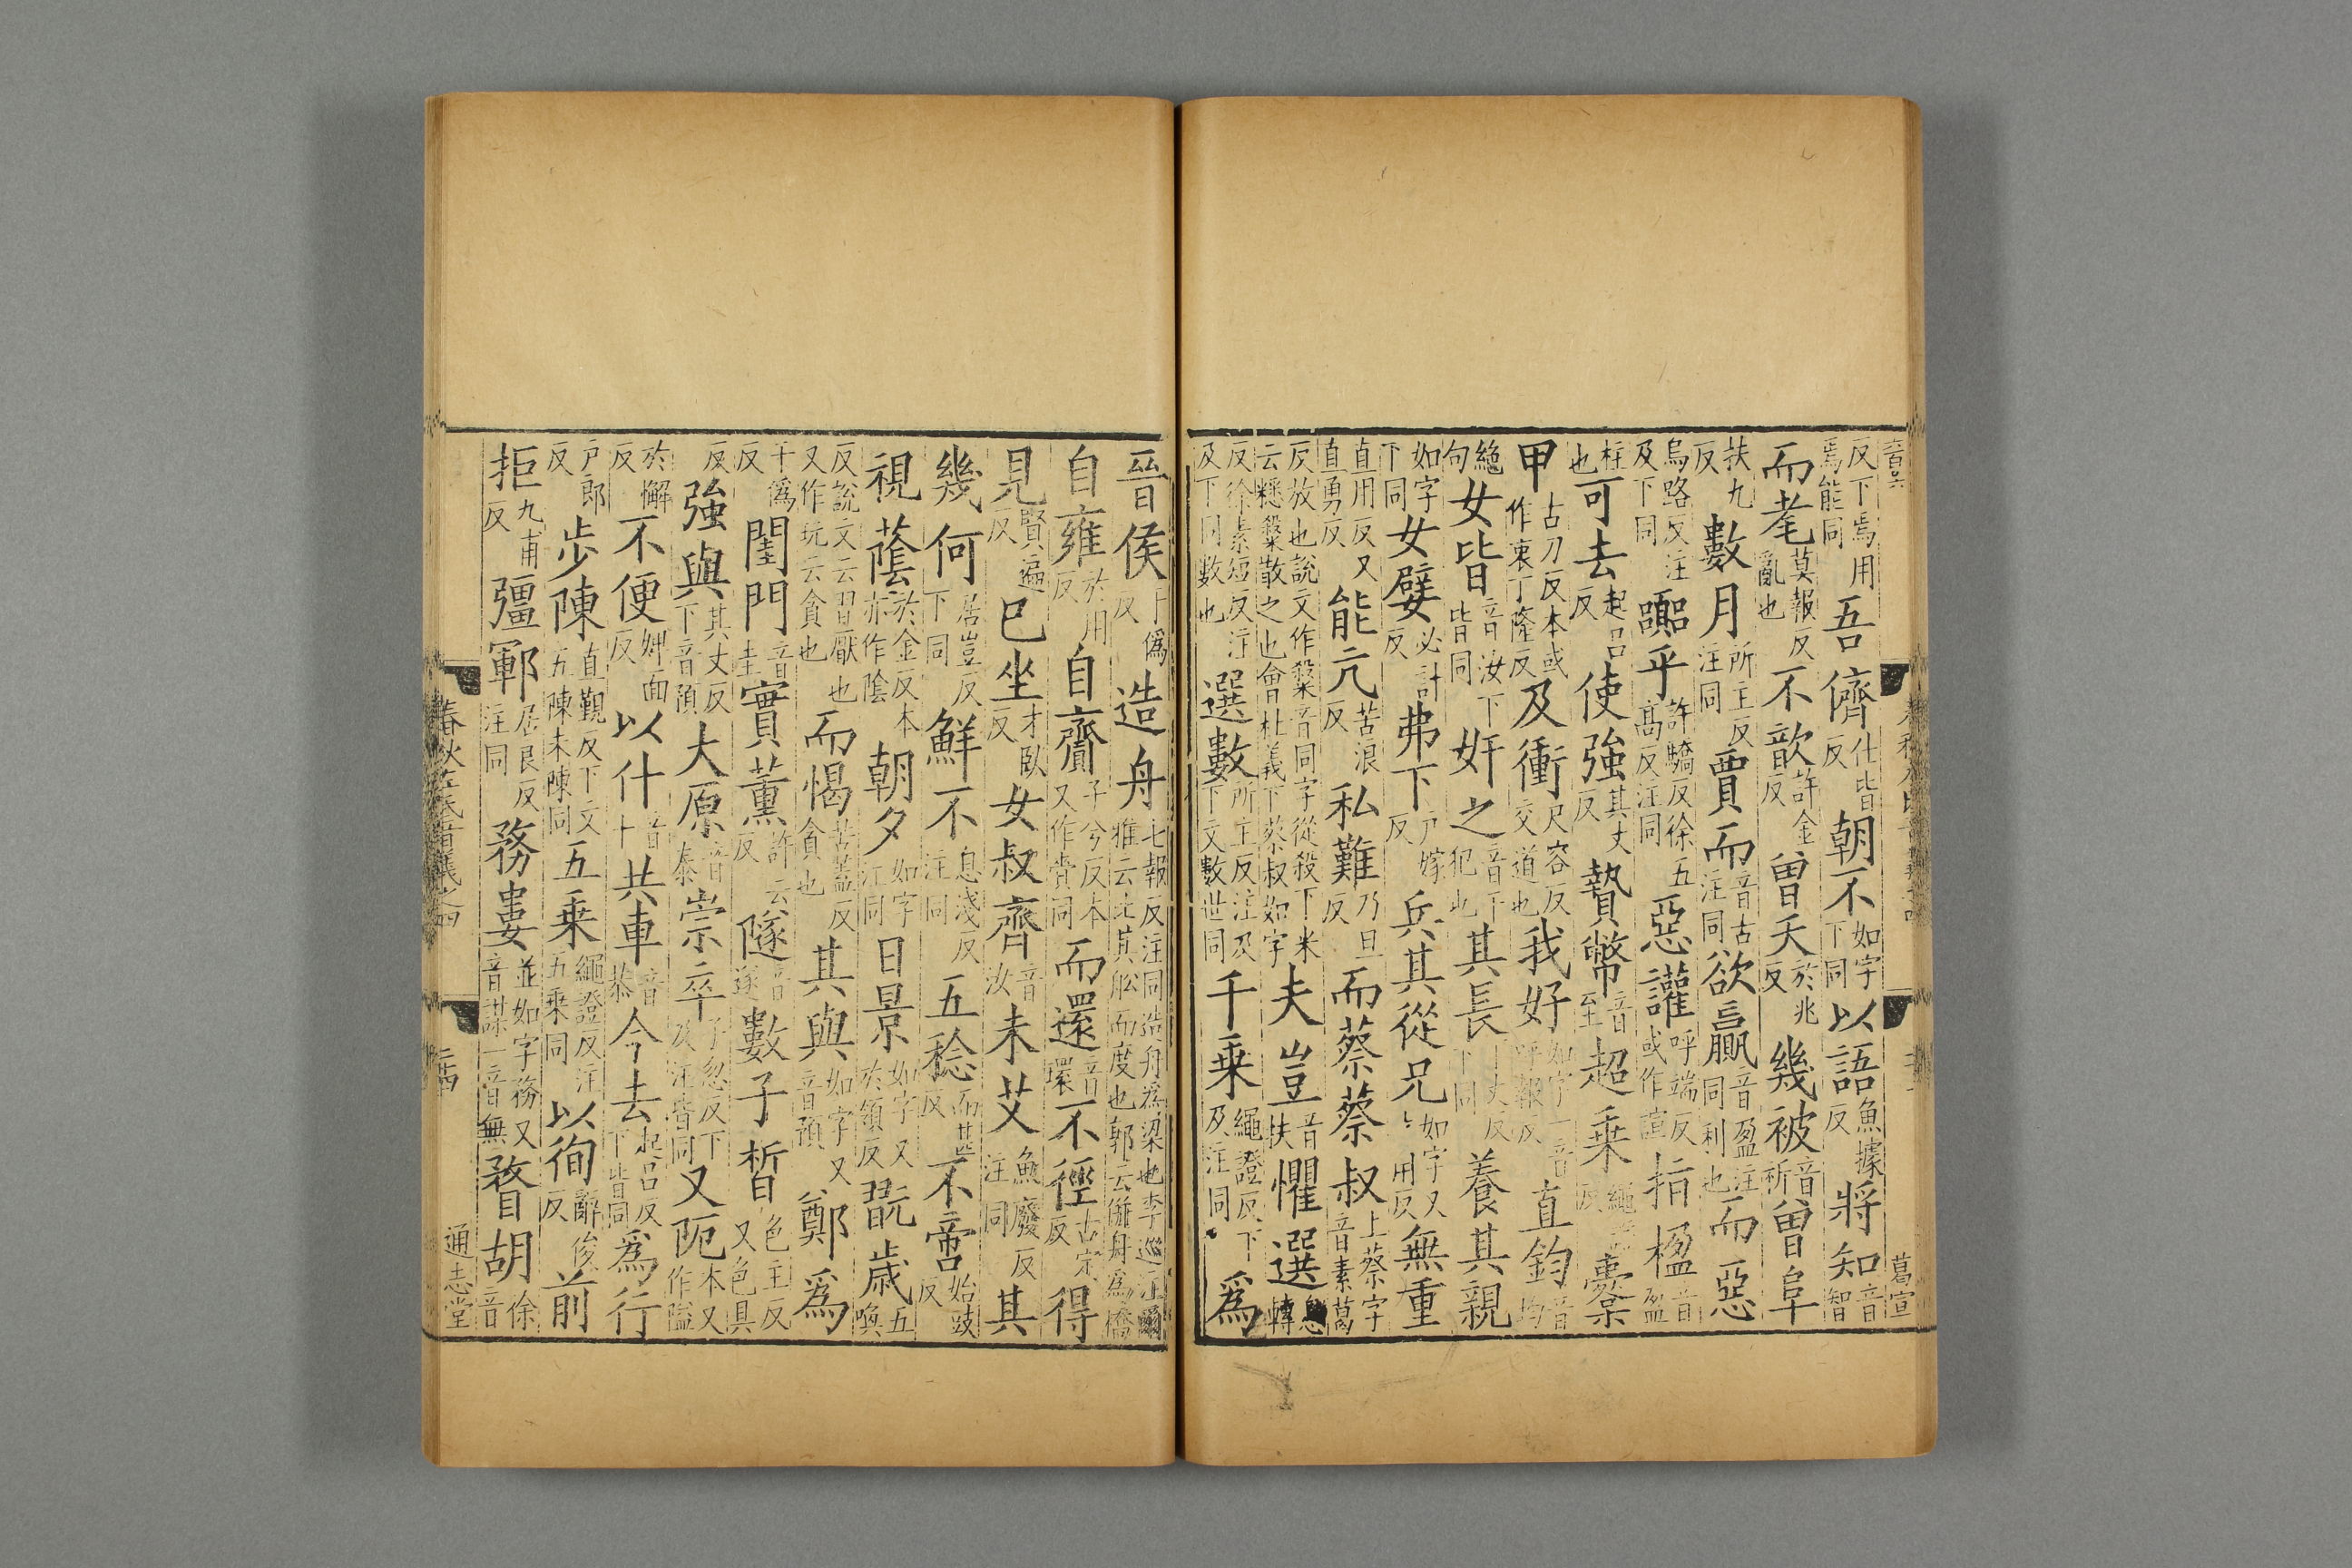 反下焉用焉能同吾儕仕皆反朝不如字下同以語魚據反將知音智
而耄莫報反亂也不歆許金反曾夭於兆反幾被音祈曾阜
扶九反數月所主反注同賈而音古注同欲贏音盈注同利也而惡
烏路反注及下同嚻乎許驕反徐五高反注同惡讙呼端反或作諠指楹音盈
柱也可去起呂反使強其丈反贄幣音至超乗繩反櫜
甲古刀反本或作衷丁隆反及衝尺容反交道也我好如字一音呼報反直鈞音均
絶句女皆音汝下皆同奸之音干犯也其長丁丈反下同養其親
如字下同女嬖必計反弗下戸嫁反兵其從兄如字又用反無重
直用反又直勇反能亢苦浪反私難乃旦反而蔡蔡叔上蔡字音素葛
反放也說文作㯔音同字從殺下米云糂㯔散之也會杜義下蔡叔如字夫豈音扶懼選息轉
反徐素短反注及下同數也選數所主反注及下文數世同千乗繩證反下及注同爲
晉侯于僞反造舟七報反注同造舟爲梁也李巡注爾雅云比其舩而度也郭云併舟爲橋
自雍於用反自齎子兮反本又作賷同而還音環不徑古定反得
見賢遍反巳坐才臥反女叔齊音汝未艾魚廢反注同其
幾何居豈反下同鮮不息淺反注同五稔而甚反不啻始豉反
視蔭於金反本亦作陰朝夕如字注同日景如字又於領反翫歲五喚
反說文云習厭也又作玩云貪也而愒苦蓋反貪也其與如字又音預鄭爲
于僞反閨門音圭實薰許云反隧音遂數子皙色主反又色具
反強與其丈反下音預大原音泰崇卒子忽反下及注皆同又阨本又作隘
於懈反不便婢面反以什音十共車音恭今去起呂反下皆同爲行
戸郎反步陳直覲反下文五陳未陳同五乗繩證反注五乗同以徇辭俊反前
拒九甫反彊鄆居良反注同務婁並如字務又音謀一音無瞀胡徐音
春秋左氏音義之四
二十四
通志堂
葛宣